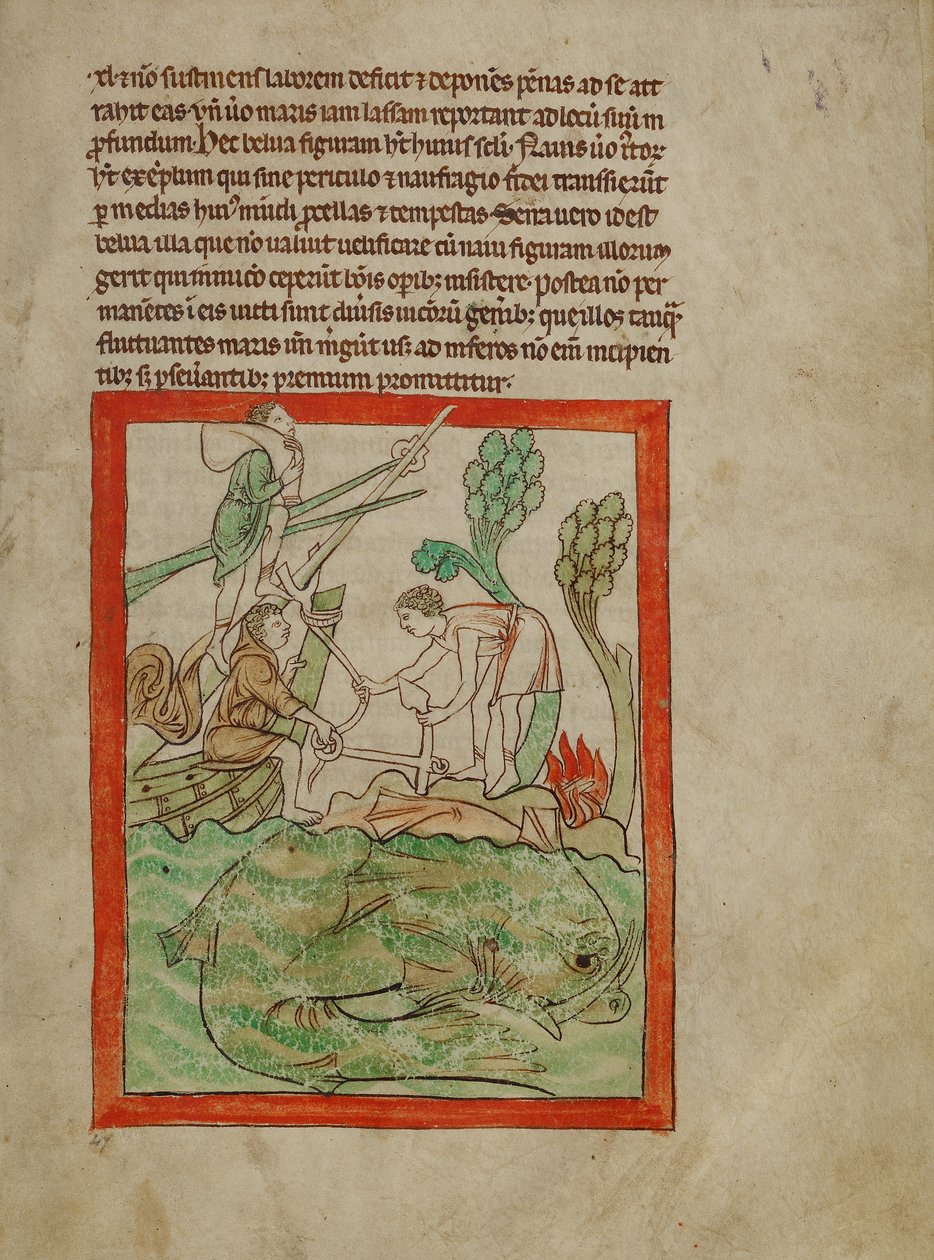 ·xl· ⁊ nō sustinens laborem deficit ⁊ deponēs pēnas ad se att
rahit eas· vn̄ u̅o maris iam lassam reportant ad locū suū in
ꝓfundum· Hec belua figuram hт̄ huius scl̄i· Nauis u̅o iꝰtoꝝ
hт̄ exēplum qui sine periculo ⁊ naufragio fidei transsierūt
ꝑ medias huiꝰ mūdi ꝓcellas ⁊ tempestas· Serra vero id est
belua illa que nōn ualuit uelificare cū naui figuram illorum
gerit qui in inicō ceperūt bōis oꝑibꝫ insistere· postea nō per
manētes ī eis uicti sunt diuͥsis uicōrū genͥibꝫ que illos tanꝙ̄
fluctuantes maris un̄ mͥgūt usꝫ ad inferos nō eīn incipien
tibꝫ sꝫ ꝑseuͥantibꝫ premium promittitur·
47